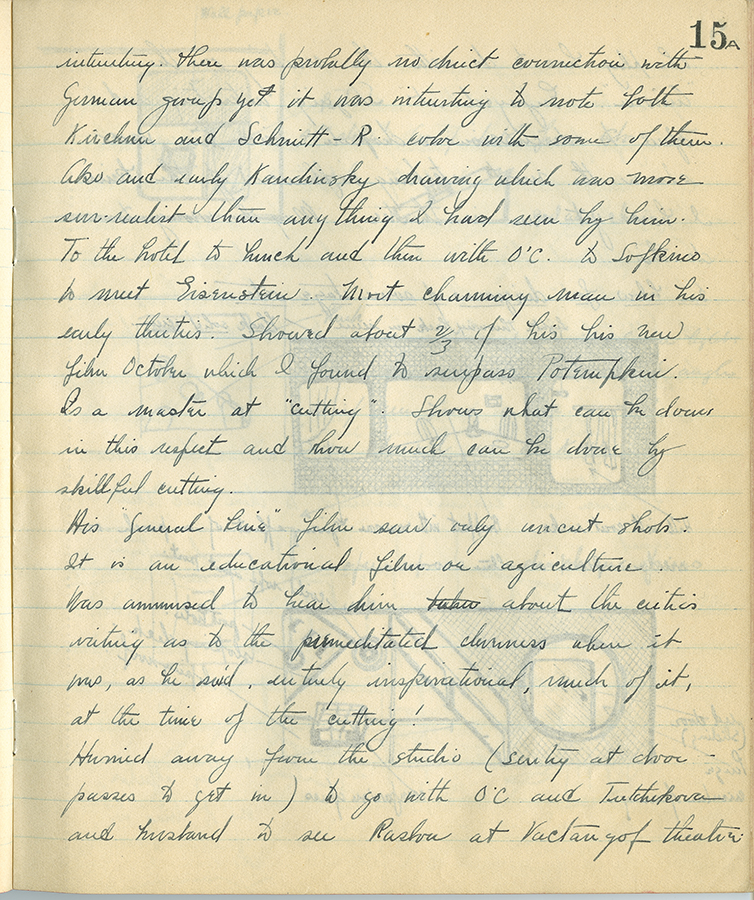 15A
interesting. There was probally no direct connection with
German group yet it was interesting to note both
Kirchner and Schmitt-R. color with some of them.
Also and early Kandinsky drawing which was more
sur-realist than anything I had seen by him.
To the hotel to lunch and then with O'C. to Sofkino
to meet Eisenstein. Most charming man in his
early thirtis. Showed about 2/3 of his his new
film October which I found to surpass Potempkin.
Is a master at "cutting". Shows what can be done
in this respect and how much can be done by
skillful cutting.
His "General Line" film saw only uncut shots.
It is an educational film on agriculture.
Was ammused to hear him about the critics
writing as to the premeditated cleverness where it
was, as he said, entirely inspirational, much of it,
at the time of the cutting!
Hurried away from the studio (sentry at door -
passes to get in) to go with O'C and
and husband to see at Vactangof theatre